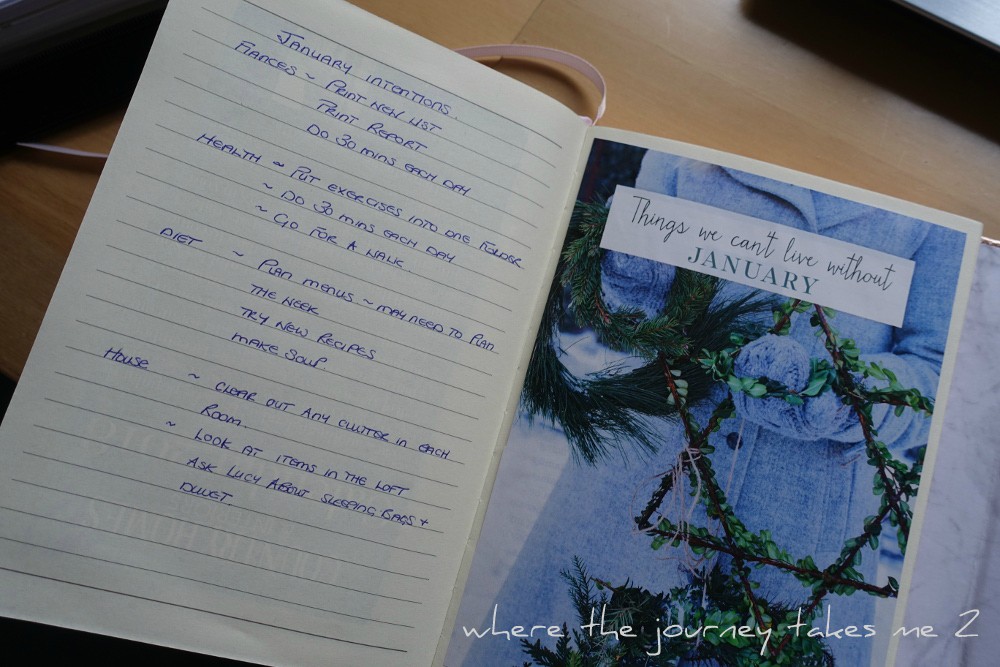 JANUARY INTENTIONS.
FIANCES ~ PRINT NEW LIST
PRINT REPORT
DO 30 MINS EACH DAY
HEALTH ~ PUT EXERCISES INTO ONE FOLDER
~ DO 30 MINS EACH DAY
~ GO FOR A WALK.
DIET ~ PLAN MENUS ~ MAY NEED TO PLAN
THE WEEK
TRY NEW RECIPES
MAKE SOUP.
HOUSE ~ CLEAR OUT ANY CLUTTER IN EACH
ROOM.
~ LOOK AT ITEMS IN THE LOFT
ASK LUCY ABOUT SLEEPING BAGS +
DUVET.
Things we can't live without
JANUARY
where the journey takes me 2